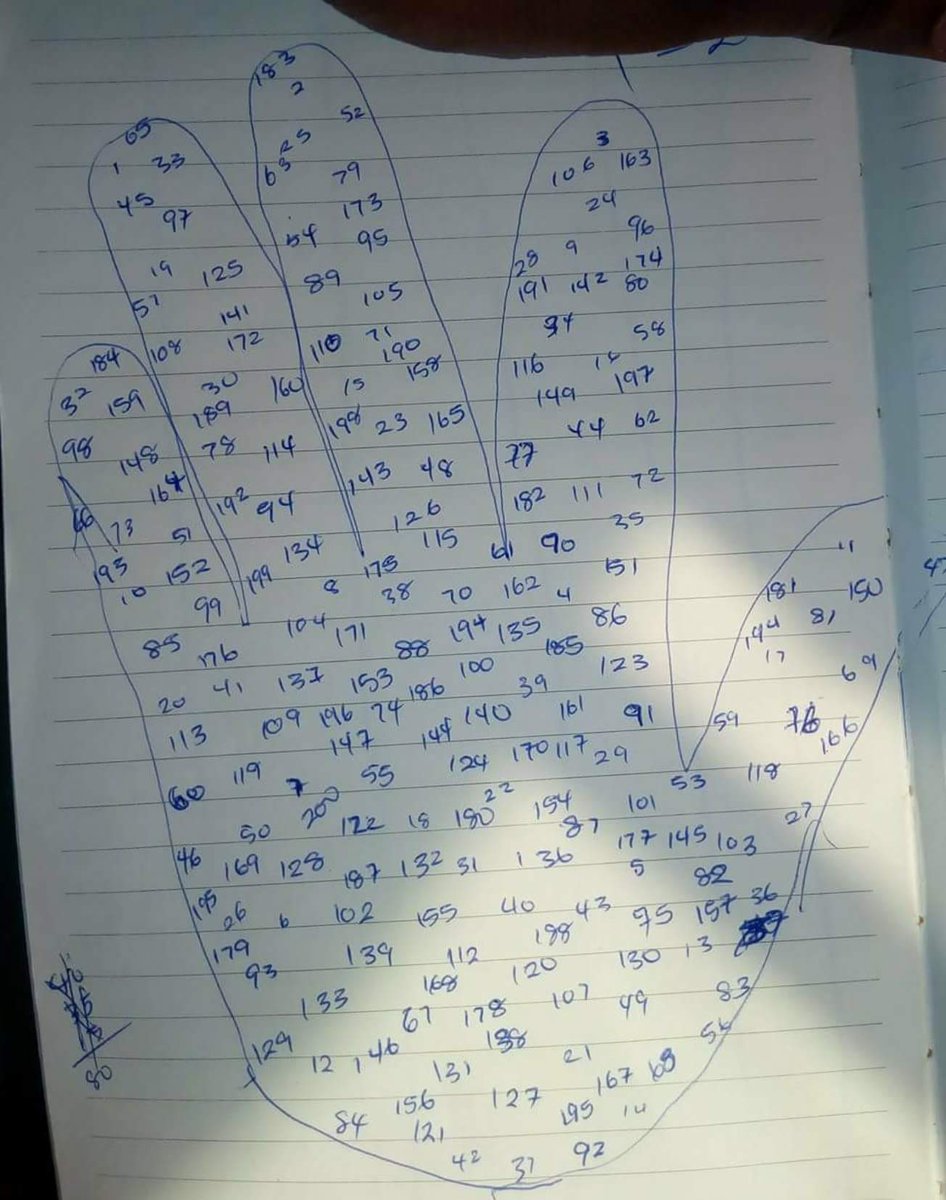 183
2
52
65
1 33
25
63 79
3
106 163
45 97
173
24
54 95
96
28 9 174
19 125
89
105
191 142 80
57 141
34 58
184 108 172
110 71 190
116
32 159 30 160 15 158
149 197
189
198 23 165
44 62
98 148 78 114
77
164 192 94 143 48
182 111 72
66 73 51 126
35
193 134 115 61 90
10 152 199 8 175
151
99 38 70 162 4
85 176 104 171 88 194 135 86
11
181 150
20 41 137 153 186 100 185 123
144 81
17
69
113 109 196 74 140 39 161 91
147 144
59 76 166
60 119 7 55 124 170 117 29
53 118
50 200 122 18 180 22 154 101
87
27
46 169 128 187 132 31 136 177 145 103
5 82
26 6 102 155 40 43 75 157 36
179 93 139 112 188 130 13
168 120
133 67 178 107 49 83
129 12 146 138 21
131 167
84 156 127 195 14
121
42 37 92
80